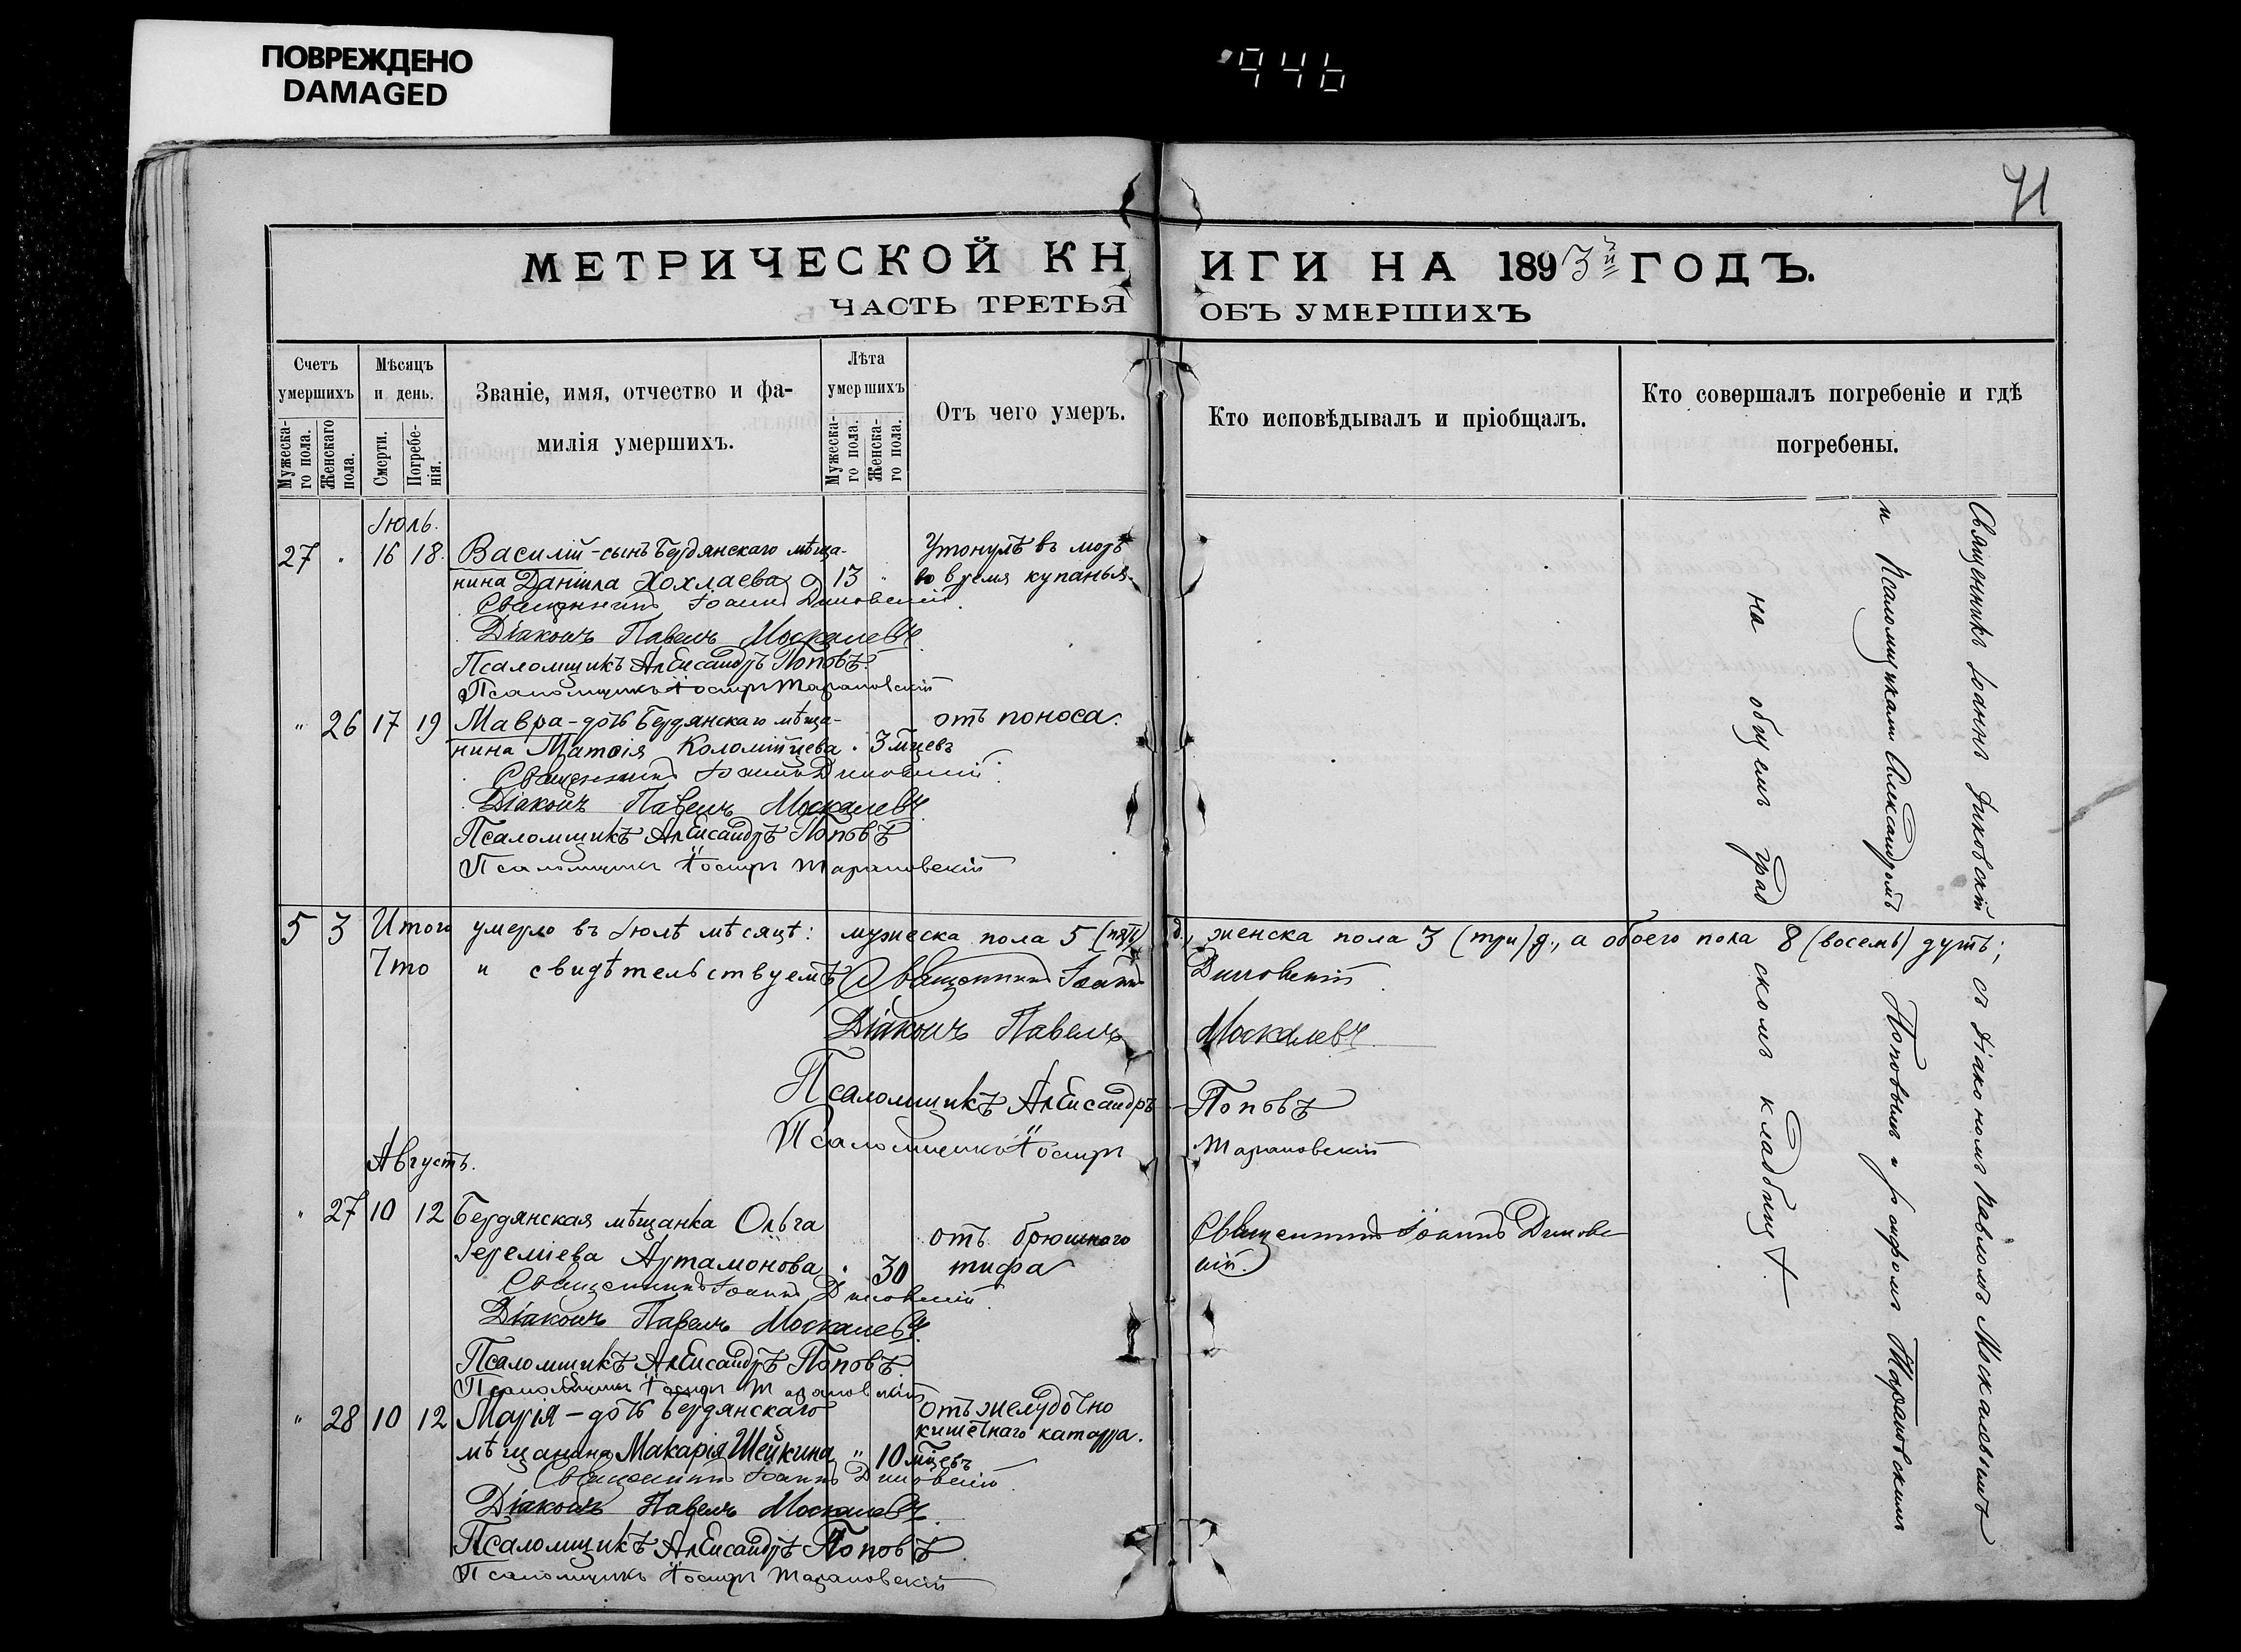 ПОВРЕЖДЕНО
DAMAGED
946
71
МЕТРИЧЕСКОЙ КНИГИ НА 1893й ГОДЪ.
ЧАСТЬ ТРЕТЬЯ ОБЪ УМЕРШИХЪ
Счетъ умершихъ.
Мужеска-го пола.
Женскаго пола.
Мѣсяцъ и день.
Смерти.
Погребе-нія.
Званіе, имя, отчество и фа-
милія умершихъ.
Лѣта умершихъ
Мужеска-го пола.
Женска-го пола.
Отъ чего умеръ.
Кто исповѣдывалъ и пріобщалъ.
Кто совершалъ погребеніе и гдѣ
погребены.
Іюль.
27 " 16 18. Василій - сынъ Бердянскаго мѣща- Утонулъ въ морѣ
нина Даніила Хохлаева 13 " во время купанья.
Священникъ Іоаннъ Диковскій.
Діаконъ Павелъ Москалевъ
Псаломщикъ Александръ Поповъ.
Псаломщикъ Іосифъ Тарановскій
" 26 17 19 Мавра - дочь Бердянскаго мѣща- отъ поноса.
нина Матѳія Коломійцева . 3 мцевъ
Священникъ Іоаннъ Диковскій.
Діаконъ Павелъ Москалевъ
Псаломщикъ Александръ Поповъ
Псаломщикъ Іосифъ Тарановскій
5 3 Итого умерло въ Іюлѣ мѣсяцѣ: мужеска пола 5 (пять) д., женска пола 3 (три) д., а обоего пола 8 (восемь) душъ;
Что и свидѣтельствуемъ Священникъ Іоаннъ Диковскій.
Діаконъ Павелъ Москалевъ.
Псаломщикъ Александръ Поповъ
Псаломщикъ Іосифъ Тарановскій
Августъ.
" 27 10 12 Бердянская мѣщанка Ольга отъ брюшного Священникъ Іоаннъ Диков-
Іереміева Артамонова . 30 тифа скій.
Священникъ Іоаннъ Диковскій.
Діаконъ Павелъ Москалевъ
Псаломщикъ Александръ Поповъ.
Псаломщикъ Іосифъ Тарановскій
" 28 10 12 Марія - дочь Бердянскаго отъ желудочно
мѣщанина Макарія Шейкина " 10 мцевъ кишечнаго катарра.
Священникъ Іоаннъ Диковскій.
Діаконъ Павелъ Москалевъ.
Псаломщикъ Александръ Поповъ.
Псаломщикъ Іосифъ Тарановскій
Священникъ Іоаннъ Диковскій съ Діакономъ Павломъ Москалевымъ
и Псаломщиками Александромъ Поповымъ и Іосифомъ Тарановскимъ
на общемъ градскомъ кладбищѣ.